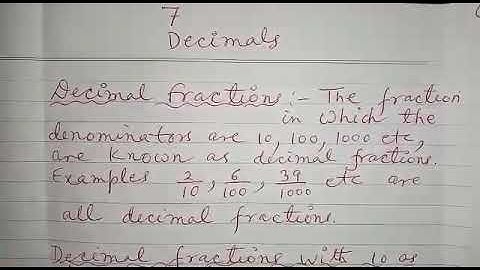 7
Decimals
Decimal Fractions:- The fraction
in which the
denominators are 10, 100, 1000 etc,
are known as decimal fractions.
Examples 2/10, 6/100, 39/1000 etc are
all decimal fractions.
Decimal fractions with 10 as